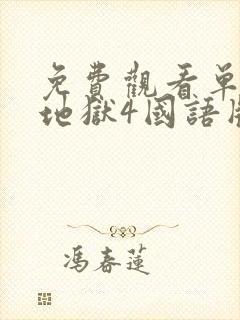 免費觀看單
地獄4國語版
馮春蓮